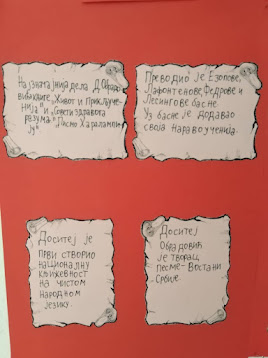 Најзначајнија дела Д. Обрадо
вића су
„Живот и Прикључе-
нија" и „Совети здравога
разума"
„Писмо Харалампи-
ју"
Преводио је Езопове,
Лафонтенове, Федрове и
Лесингове басне.
Уз басне је додавао
своја наравоученија.
Доситеј је
први створио
националну
књижевност
на чистом
народном
језику.
Доситеј
Обрадовић
је творац
песме-Востани
Србије.